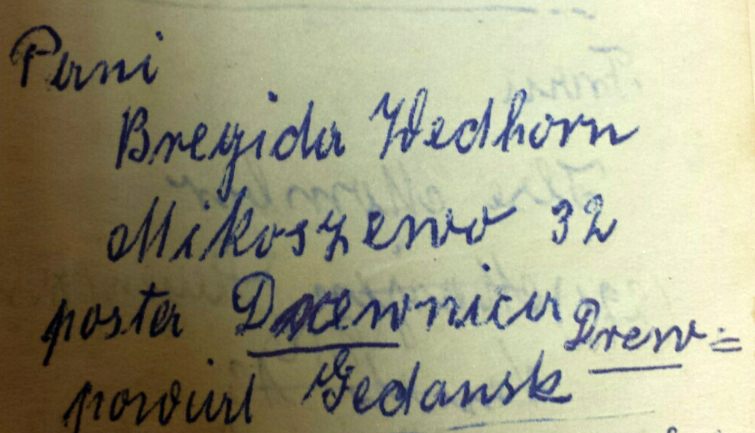 Pani
Bregida Wedhorn
Mikoszewo 32
posta Drewnica Drew=
powiat Gedansk